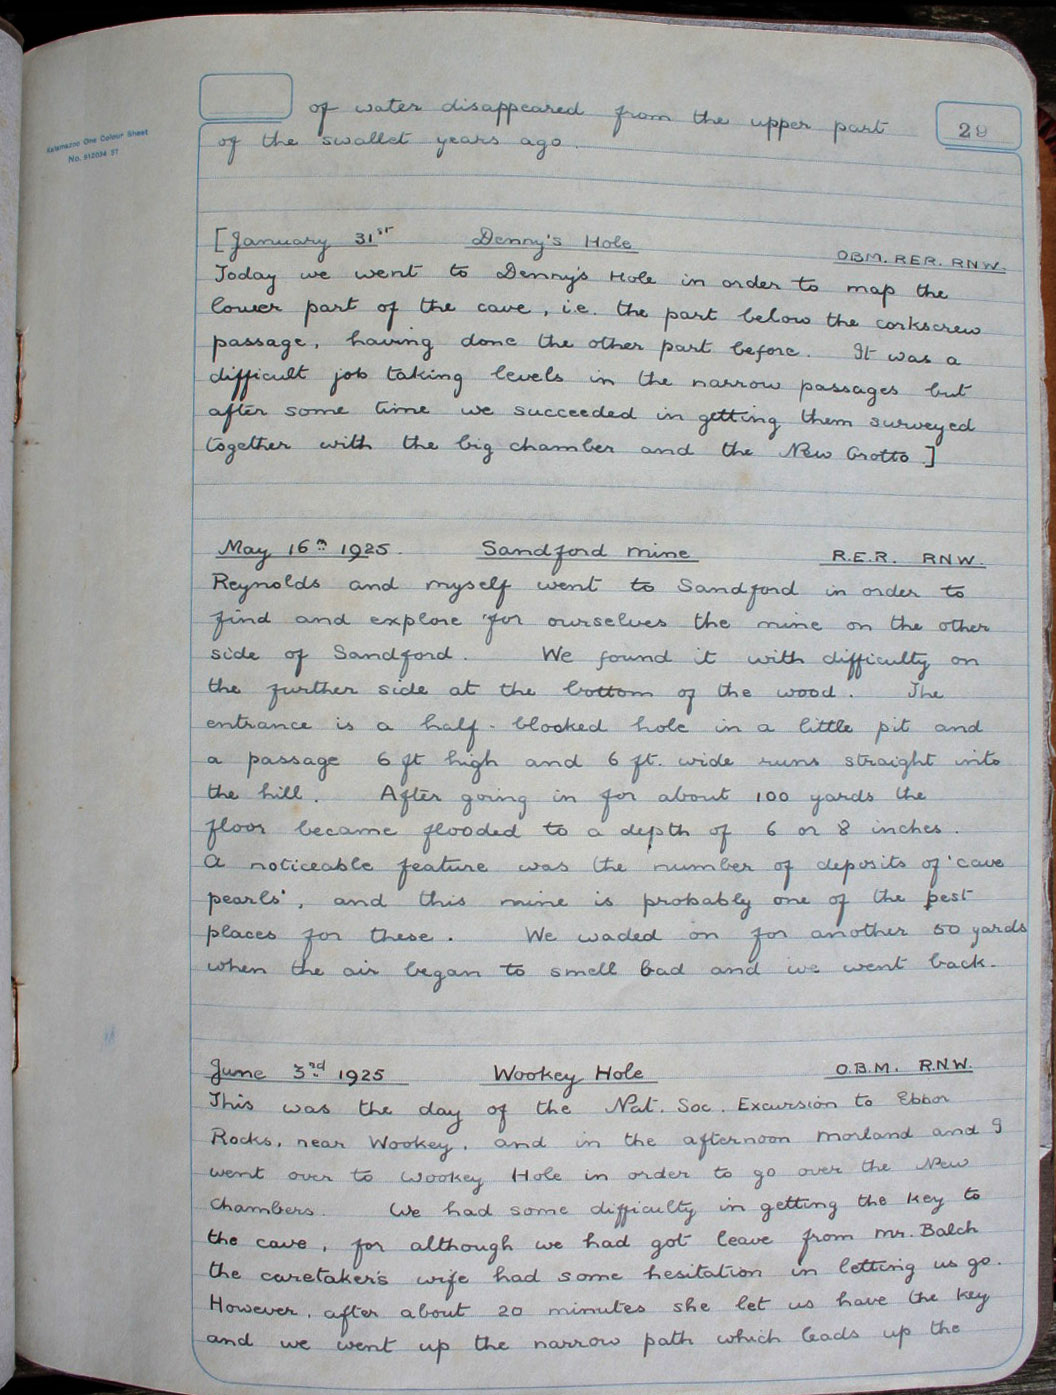 of water disappeared from the upper part
29
of the swallet years ago.
Kalamazoo One Colour Sheet
[January 31st Denny's Hole O.B.M. R.E.R. R.N.W.
Today we went to Denny's Hole in order to map the
lower part of the cave, i.e. the part below the corkscrew
passage, having done the other part before. It was a
difficult job taking levels in the narrow passages but
after some time we succeeded in getting them surveyed
together with the big chamber and the New Grotto.]
May 16th 1925. Sandford Mine R.E.R. RNW.
Reynolds and myself went to Sandford in order to
find and explore for ourselves the mine on the other
side of Sandford. We found it with difficulty on
the further side at the bottom of the wood. The
entrance is a half-blocked hole in a little pit and
a passage 6 ft high and 6 ft. wide runs straight into
the hill. After going in for about 100 yards the
floor became flooded to a depth of 6 or 8 inches.
A noticeable feature was the number of deposits of 'cave
pearls', and this mine is probably one of the best
places for these. We waded on for another 50 yards
when the air began to smell bad and we went back.
June 3rd 1925 Wookey Hole O.B.M. R.N.W.
This was the day of the Nat. Soc. Excursion to Ebbor
Rocks, near Wookey, and in the afternoon Morland and I
went over to Wookey Hole in order to go over the New
Chambers. We had some difficulty in getting the key to
the cave, for although we had got leave from Mr. Balch
the caretaker's wife had some hesitation in letting us go.
However, after about 20 minutes she let us have the key
and we went up the narrow path which leads up the